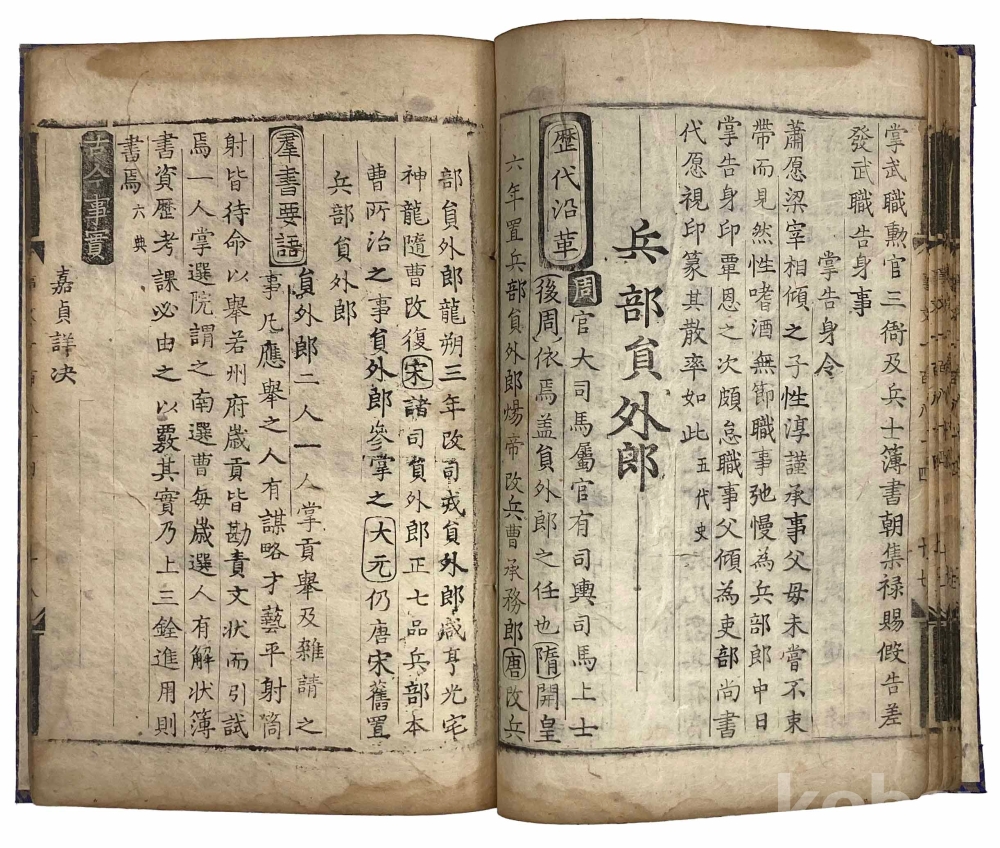 掌武職勲官三衙及兵士簿書朝集禄賜假告差
發武職告身事
掌告身令
蕭愿梁宰相傾之子性淳謹承事父母未嘗不束
帶而見然性嗜酒無節職事弛慢為兵部郎中日
掌告身印覃恩之次頗怠職事父傾為吏部尚書
代愿視印篆其散率如此 五代史
兵部貟外郎
歴代沿革 周官大司馬屬官有司輿司馬上士
後周依焉盖貟外郎之任也隋開皇
六年置兵部貟外郎煬帝改兵曹承務郎唐改兵
部貟外郎龍朔三年改司戎貟外郎咸亨光宅
神龍隨曹改復宋諸司貟外郎正七品兵部本
曹所治之事貟外郎參掌之大元仍唐宋舊置
兵部貟外郎
羣書要語 貟外郎二人一人掌貢舉及雜請之
事凡應舉之人有謀略才藝平射筒
射皆待命以舉若州府歳貢皆勘責文状而引試
焉一人掌選院謂之南選曹每歳選人有解状簿
書資歴考課必由之以覈其實乃上三銓進用則
書焉 六典
古今事實
嘉貞詳决